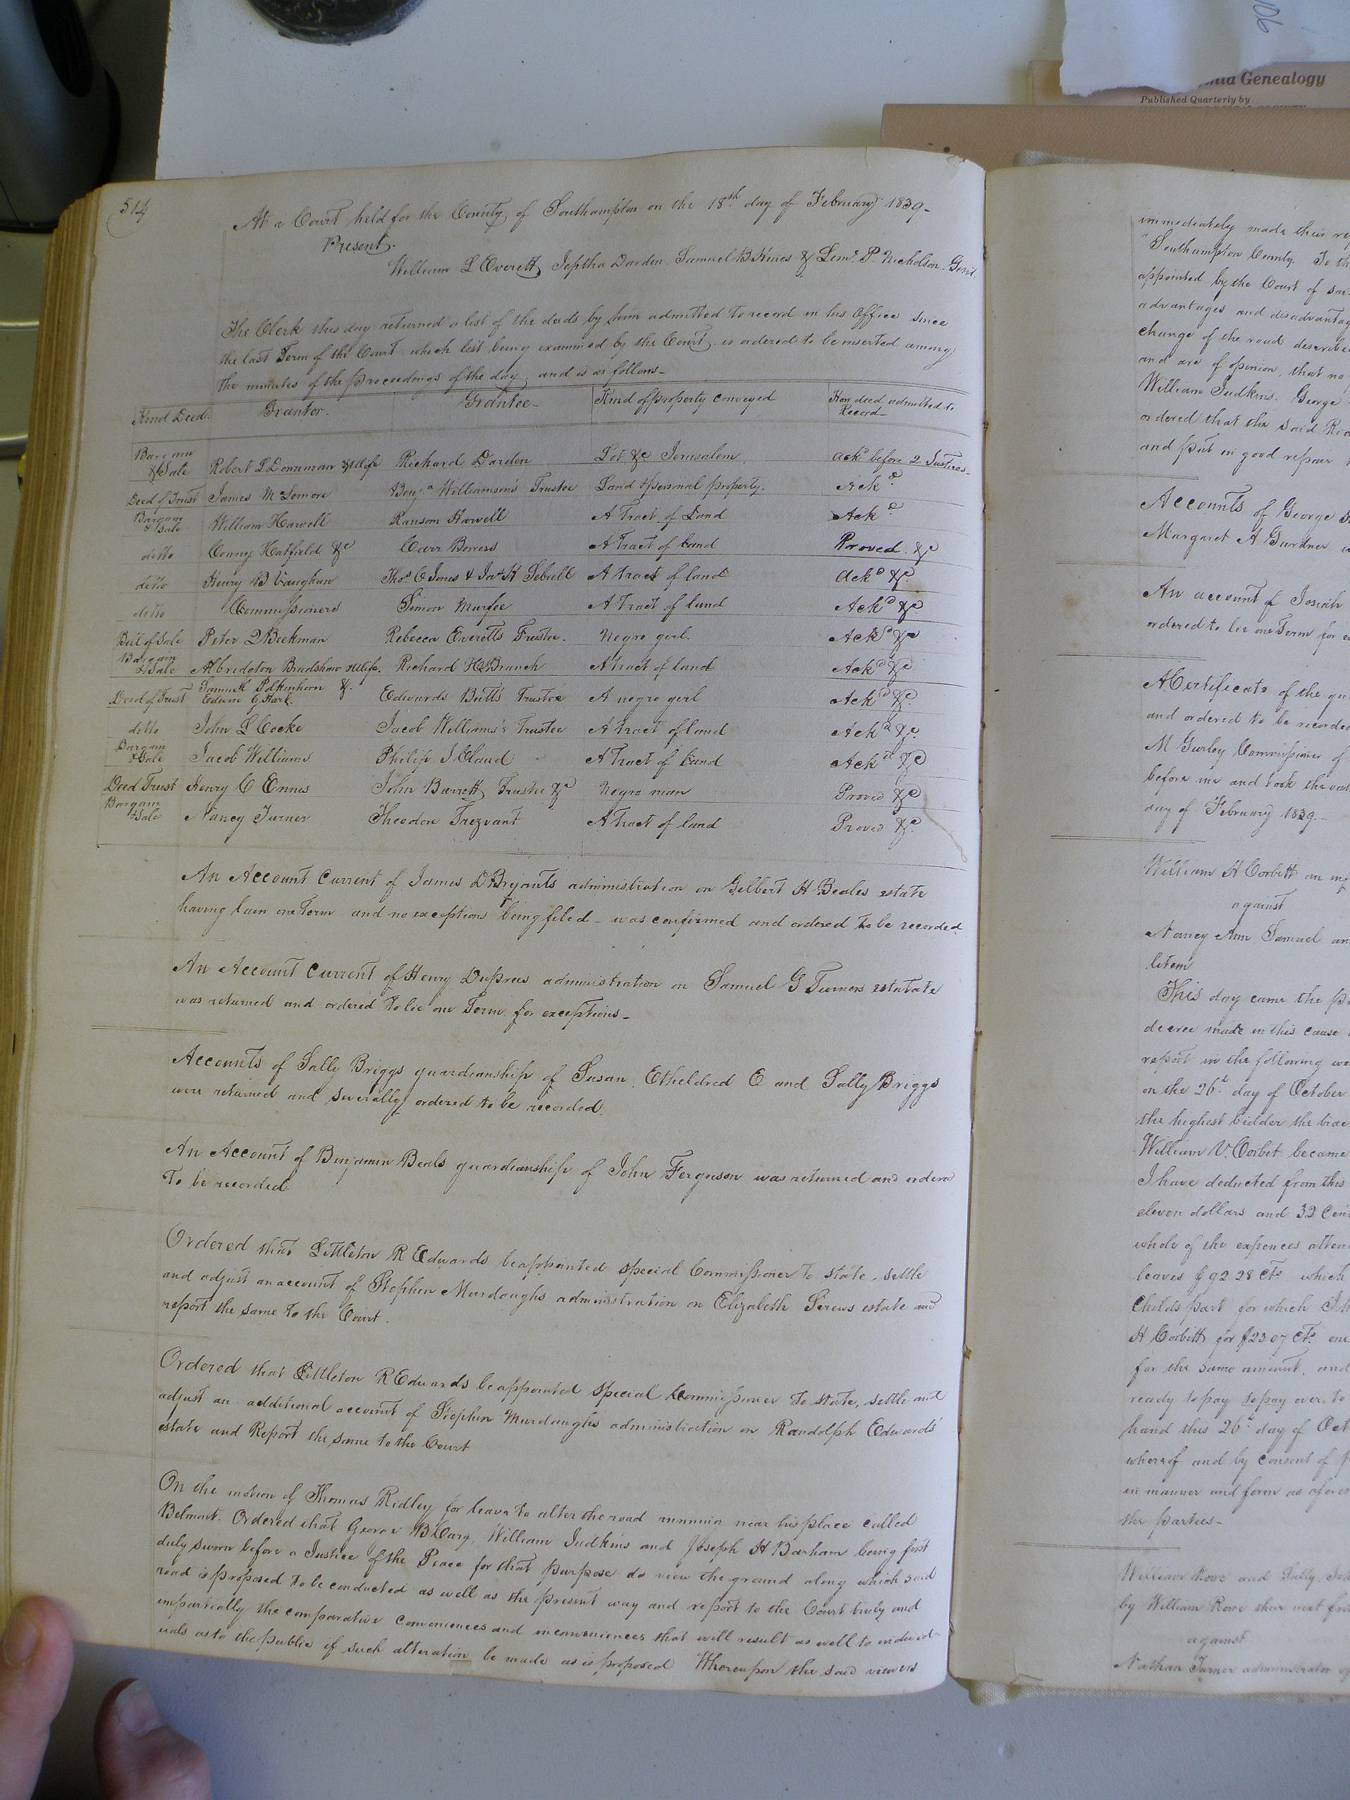 106
Genealogy
Published Quarterly by
514
At a Court held for the County of Southampton on the 18th day of February 1839-
Present-
William L Everett, Jeptha Darden Samuel B Hines & Lemu. P. Nicholson Gent.
The Clerk this day returned a list of the deeds by him admitted to record in his office since
the last Term of the Court, which list being examined by the Court, is ordered to be inserted among
the minutes of the proceedings of the day, and is as follows-
Kind Deed. Grantor. Grantee- Kind of property conveyed How deed admitted to Record-
Bargain & Sale Robert & Wife Richard Darden Lot &c Jerusalem ackd before 2 Justices-
Deed of Trust James M Benja Williamson's Trustee Land & personal property. Ackd
Bargain & Sale William Harwell Ransom Harwell A Tract of Land Ackd
ditto Hatfield &c Carr Bowers A Tract of land Proved &c
ditto Henry B Vaughan Thos C Jones & Jas H Sebrell A tract of land Ackd &c
ditto Commissioners Simon Murfee A Tract of land Ackd &c
Bill of Sale Peter Beekman Rebecca Everetts Trustee. Negro girl. Ackd &c
Bargain & Sale Abridgton Bradshaw & wife. Richard H Branch A Tract of land Ackd &c
Deed of Trust Samuel &. Edwin G Hart. Edwards Butts Trustee A negro girl Ackd &c
ditto John L Cocke Jacob Williams's Trustee A tract of land Ackd &c
Bargain & Sale Jacob Williams Philip J Claud A Tract of Land Ackd &c
Deed Trust Henry C Ennis John Barrett, Trustee &c Negro man Proved &c
Bargain & Sale Nancy Turner Theodore Trezvant A Tract of land Proved &c
An Account Current of James D Bryants administration on Gilbert H Beales estate
having lain one Term and no exceptions being filed - was confirmed and ordered to be recorded
An Account Current of Henry Duprees administration on Samuel G Turners estatate
was returned and ordered to lie one Term for exceptions-
Accounts of Sally Briggs guardianship of Susan, Etheldred E and Sally Briggs
were returned and severally ordered to be recorded.
An Account of Benjamin Beals guardianship of John Ferguson was returned and ordered
to be recorded
Ordered that Littleton R Edwards be appointed special Commissioner to state, settle
and adjust an account of Stephen Murdaughs administration on Elizabeth Screws estate and
report the same to the Court.
Ordered that Littleton R Edwards be appointed special Commissioner to state, settle and
adjust an additional account of Stephen Murdaughs administration on Randolph Edwards'
estate and Report the same to the Court
On the motion of Thomas Ridley for leave to alter the road running near his place called
Belmont. Ordered that George B Cary, William Judkins and Joseph H Barham being first
duly sworn before a Justice of the Peace for that purpose do view the ground along which said
road is proposed to be conducted as well as the present way and report to the Court truly and
impartially the comparative conveniences and inconveniences that will result as well to individ-
uals as to the public if such alteration be made as is proposed Whereupon the said viewers
immediately made their
Southampton County. To the
appointed by the Court of
advantages and
change of the road
and are of opinion, that no
William Judkins. George
ordered that the said
and put in good repair
Accounts of George
Margaret A Gurdner
An account of Josiah
ordered to lie one Term for
A Certificate of the
and ordered to be recorded
M Gurley Commissioner of
before me and took the
day of February 1839-
William H Corbitt an
against
Nancy Ann, Samuel
litem
This day came the
decree made in this cause
report in the following
on the 26th day of October
the highest bidder the
William V Corbet became
I have deducted from this
eleven dollars and 32
whole of the expences
leaves $92.28 Cts. which
Childs part for which
H Corbitt for $23 07 Cts.
for the same amount, and
ready to pay to pay over to
hand this 26th day of
whereof and by consent of
in manner and form as
the parties-
William Rowe and Sally
by William Rowe their next
against
Nathan Turner administrator of